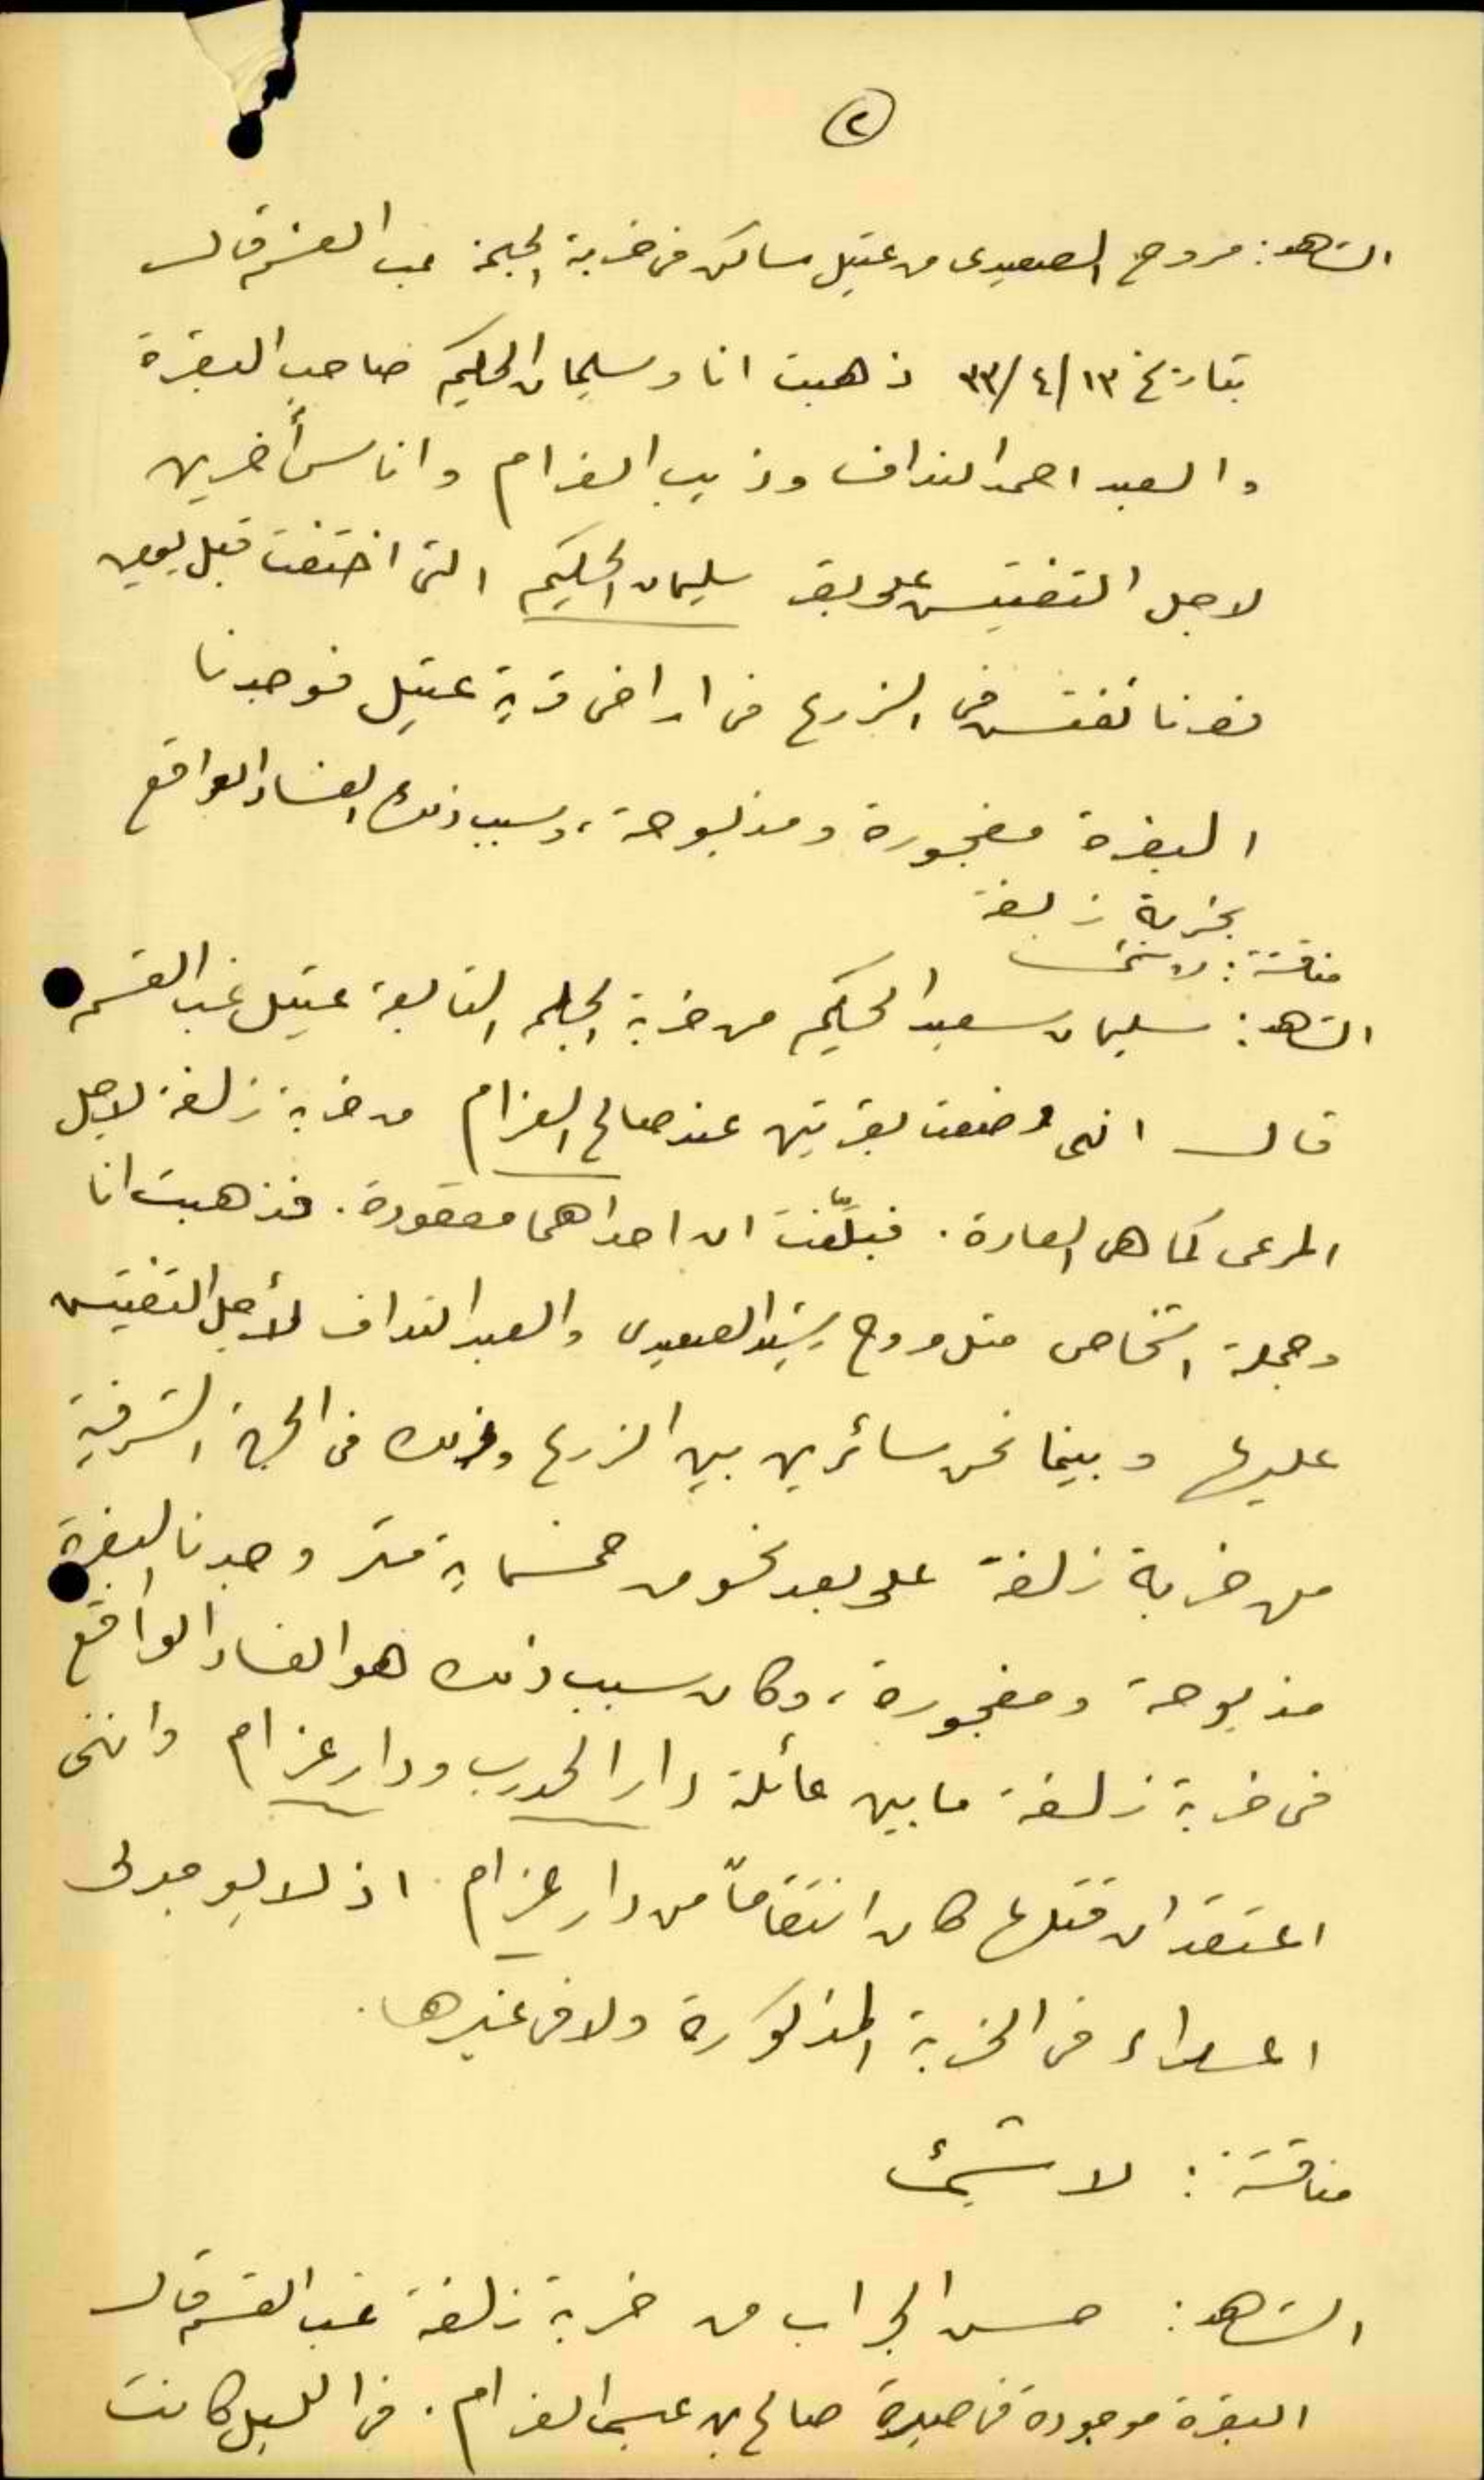 ٢
الشاهد: مروح الصعيدي من عتيل ساكن في خربة الجلمة غب القسم قال
بتاريخ ١٣/٤/٣٣ ذهبت انا وسليمان الحكيم صاحب البقرة
والعبد احمد النداف وذيب العزام واناس أخرين
لاجل التفتيش على بقر سليمان الحكيم التي اختفت قبل يومين
نفتش في الزرع في اراضي قرية عتيل فوجدنا
البقرة مفجورة ومذبوحة، وسبب ذلك الفساد الواقع
بخربة زلفة
مناقشة: لا شئ
الشاهد: سليمان سعيد الحكيم من خربة الجلمه التابعة عتيل غب القسم
قال انني وضعت بقرتين عند صالح العزام من خربة زلفة لاجل
المرعى كما هي العادة. فبلّغت ان احداهما مفقودة. فذهبت انا
وجملة اشخاص مثل مروح رشيد الصعيدي والعبد النداف لأجل التفتيش
عليها وبينما نحن سائرين بين الزرع وذلك في الجهة الشرقية
من خربة زلفة على بعد نحو من خمسماية متر وجدنا البقرة
مذبوحة ومفجورة، وكان سبب ذلك هو الفساد الواقع
في خربة زلفة ما بين عائلة دار الحدرب ودار عزام وانني
اعتقد ان قتلها كان انتقاماً من دار عزام. اذ لا يوجد لي
اعداء في الخربة المذكورة ولا في غيرها.
مناقشة: لا شئ
الشاهد: حسن الجراب من خربة زلفة غب القسم قال
البقرة موجودة في صيرة صالح بن عيسى العزام. في الليل كانت